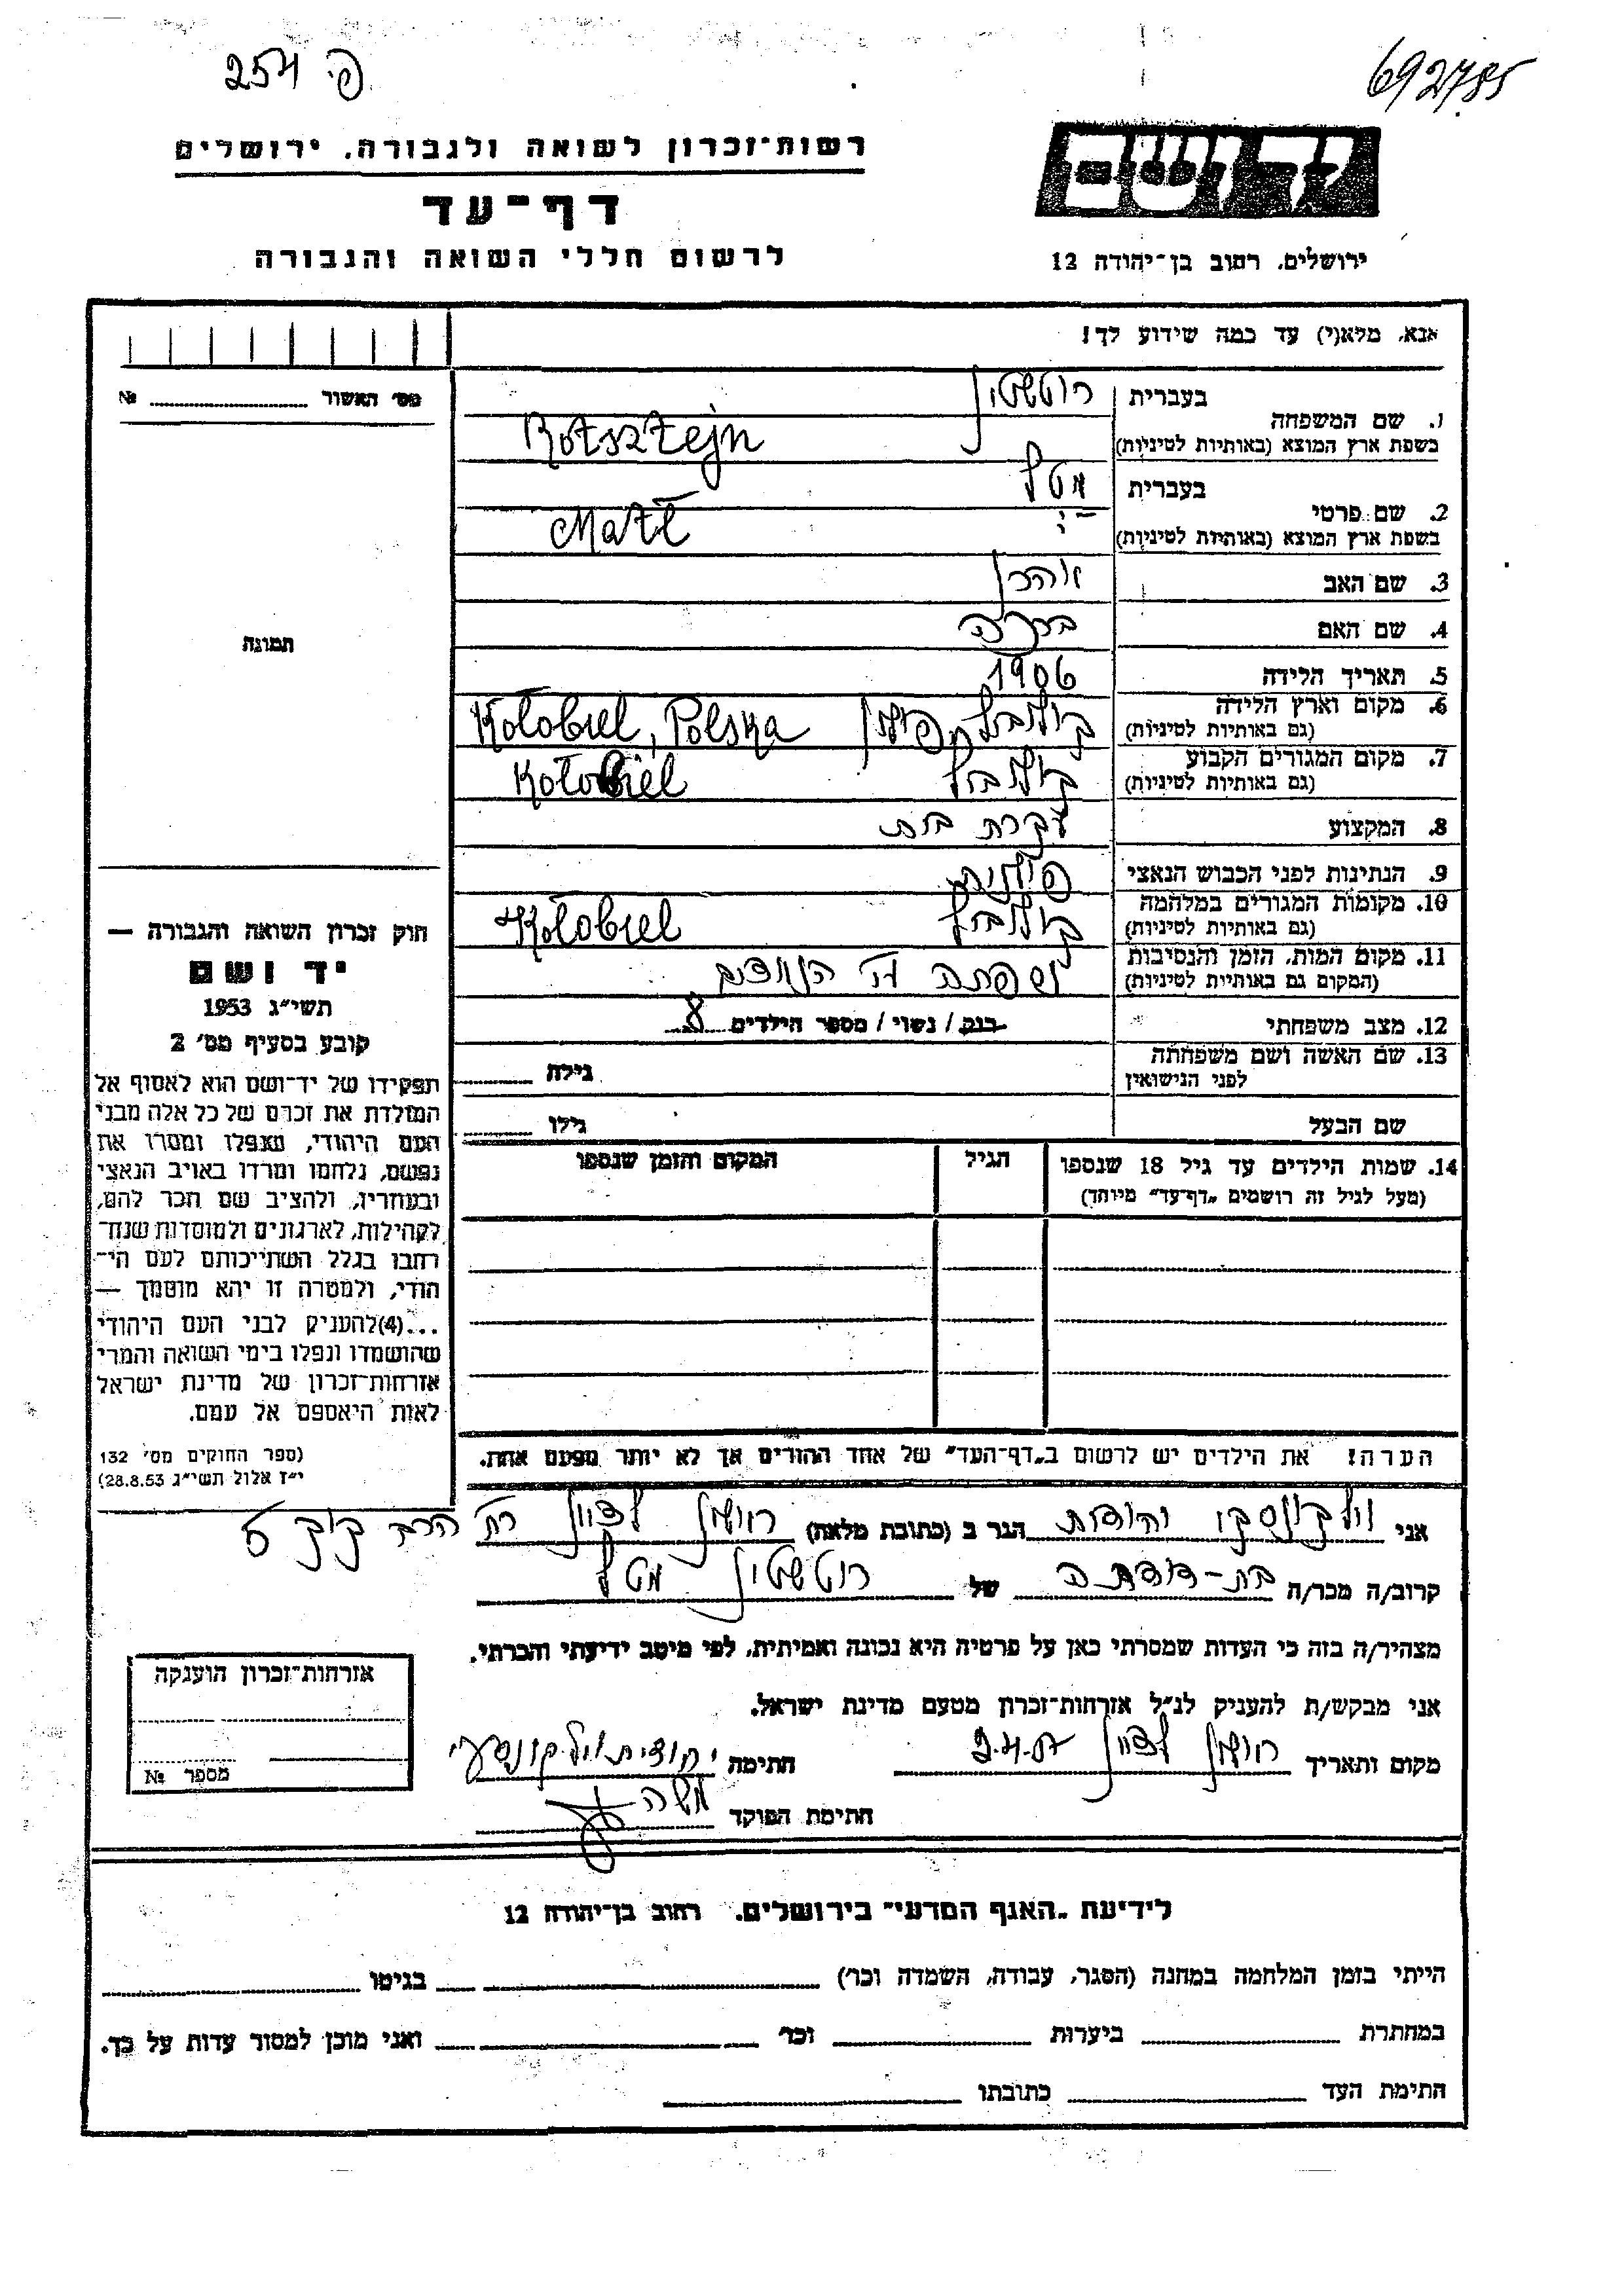 254 פ.
692785
רשות־זכרון לשואה ולגבורה, ירושלים
דף־עד
לרשום חללי השואה והגבורה
יד ושם
ירושלים, רחוב בן־יהודה 12
אנא, מלא(י) עד כמה שידוע לך!
מס׳ האשור № 
תמונה
1. שם המשפחה
בעברית רוטשטיין
בשפת ארץ המוצא (באותיות לטיניות) Rotsztejn
2. שם פרטי
בעברית מטל
בשפת ארץ המוצא (באותיות לטיניות) Matl
3. שם האב אהרן
4. שם האם ברכה
5. תאריך הלידה 1906
6. מקום וארץ הלידה (גם באותיות לטיניות) קולוביל, פולין Kołobiel, Polska
7. מקום המגורים הקבוע (גם באותיות לטיניות) קולוביל Kołobiel
8. המקצוע עקרת בית
9. הנתינות לפני הכבוש הנאצי פולנית
10. מקומות המגורים במלחמה (גם באותיות לטיניות) קולוביל Kołobiel
11. מקום המות, הזמן והנסיבות (המקום גם באותיות לטיניות) נספתה
12. מצב משפחתי רווק / נשוי / מספר הילדים 8
13. שם האשה ושם משפחתה לפני הנישואין
גילה
שם הבעל
גילו
14. שמות הילדים עד גיל 18 שנספו (מעל לגיל זה רושמים „דף־עד” מיוחד)
הגיל
המקום והזמן שנספו
הערה! את הילדים יש לרשום ב„דף־העד” של אחד ההורים אך לא יותר מפעם אחת.
חוק זכרון השואה והגבורה —
יד ושם
תשי״ג 1953
קובע בסעיף מס׳ 2
תפקידו של יד־ושם הוא לאסוף אל
המולדת את זכרם של כל אלה מבני
העם היהודי, שנפלו ומסרו את
נפשם, נלחמו ומרדו באויב הנאצי
ובעוזריו, ולהציב שם וזכר להם,
לקהילות, לארגונים ולמוסדות שנח־
רבו בגלל השתייכותם לעם הי־
הודי, ולמטרה זו יהא מוסמך —
...(4)להעניק לבני העם היהודי
שהושמדו ונפלו בימי השואה והמרי
אזרחות־זכרון של מדינת ישראל
לאות היאספם אל עמם.
(ספר החוקים מס׳ 132
י״ז אלול תשי״ג 28.8.53)
אני וילקונסקי יהודית הגר ב (כתובת מלאה) ראשון לציון רח׳ הרב קוק 5
קרוב/ה מכר/ה בת-דודתה של רוטשטיין מטל
מצהיר/ה בזה כי העדות שמסרתי כאן על פרטיה היא נכונה ואמיתית, לפי מיטב ידיעתי והכרתי.
אני מבקש/ת להעניק לנ״ל אזרחות־זכרון מטעם מדינת ישראל.
מקום ותאריך ראשון לציון 9.4.57 חתימה יהודית וילקונסקי
חתימת הפוקד משה
אזרחות־זכרון הוענקה
מספר №
לידיעת „האגף המדעי” בירושלים, רחוב בן־יהודה 12
הייתי בזמן המלחמה במחנה (הסגר, עבודה, השמדה וכו׳) בגיטו
במחתרת ביערות וכו׳ ואני מוכן למסור עדות על כך.
חתימת העד כתובתו